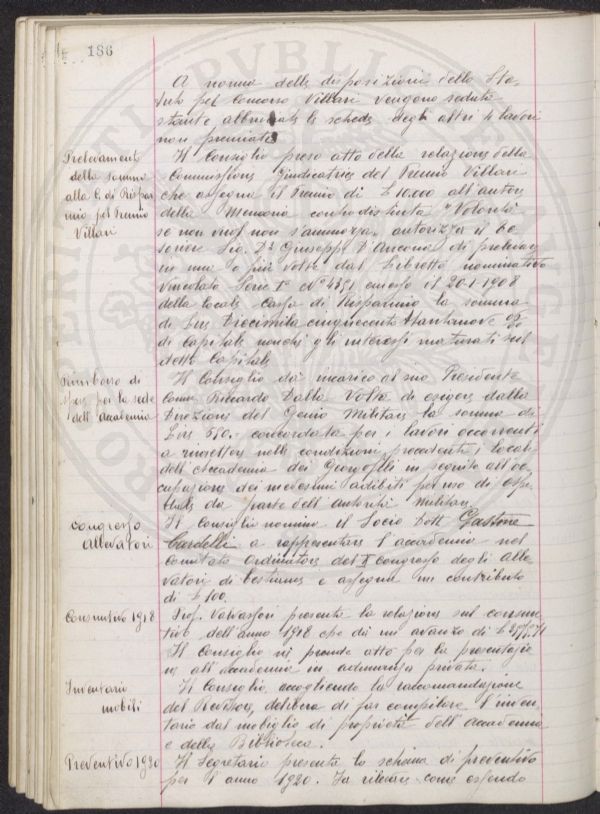 186
A norma delle disposizioni dello Sta-
tuto pel Concorso Villari vengono seduta
stante abbruciate le schede degli altri 4 lavori
non premiati
Prelevamento
della somma
alla C. di Rispar
mio pel Premio
Villari
Il Consiglio preso atto della relazione della
Commissione giudicatrice del Premio Villari
che assegna il Premio di £ 10.000 all'autore
della Memoria contradistinta "Volontà
se non vuol non s'ammorza" autorizza il Te
soriere Sig. Dr Giuseppe D'Ancona di prelevare
in una o più volte dal Libretto nominativo
vincolato Serie 1a No 4351 emesso il 20-1-1908
della locale Cassa di Risparmio la somma
di Lire Diecimila cinquecento ttantanove
di capitale nonchè gli interessi maturati sul
detto Capitale
Rimborso di
spese per la sede
dell'Accademia
Il Consiglio dà incarico al suo Presidente
Comm Riccardo Dalla Volta di esigere dalla
Direzione del Genio Militare la somma di
Lire 550.- concordata per i lavori occorrenti
a rimettere nelle condizioni precedenti i locali
dell'Accademia dei Georgofili in seguito all'oc-
cupazione dei medesimi adibiti per uso di Ospe
dale da parte dell'autorità Militare.
Congresso
allevatori
Il Consiglio nomina il Socio Dott Gastone
Cardelli a rappresentare l'accademia nel
Comitato Ordinatore del Congresso degli Alle
vatori di bestiame e assegna un contributo
di £ 100.
Consuntivo 1918
Prof. Valvassori presenta la relazione sul consun-
tivo dell'anno 1918 che dà un avanzo di £
Il Consiglio ne prende atto per la presentazio
ne all'Accademia in adunanza privata.
Inventario
mobili
Il Consiglio, accogliendo la raccomandazione
dei Revisori, delibera di far compilare l'inven-
tario del mobiglio di proprietà dell'accademia
e della Biblioteca.
Preventivo 1920
Il Segretario presenta lo schema di preventivo
per l'anno 1920. Fa rilevare come essendo